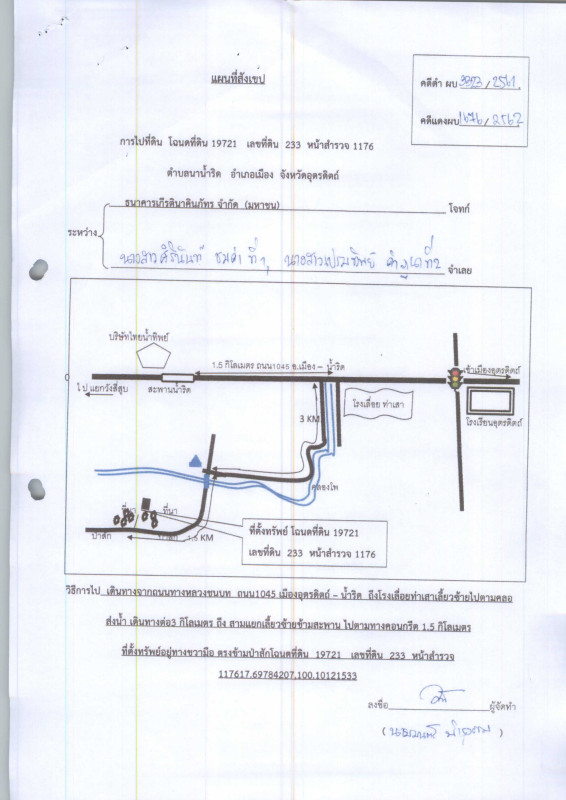 แผนที่สังเขป
คดีดำ ผบ 3923/2561
คดีแดงผบ 1676/2562
การไปที่ดิน โฉนดที่ดิน 19721 เลขที่ดิน 233 หน้าสำรวจ 1176
ตำบลนาน้ำริด อำเภอเมือง จังหวัดอุตรดิตถ์
ธนาคารเกียรตินาคินภัทร จำกัด (มหาชน) โจทก์
ระหว่าง
ที่ 1, ที่ 2 จำเลย
บริษัทไทยน้ำทิพย์
1.5 กิโลเมตร ถนน1045 อ.เมือง – น้ำริด
เข้าเมืองอุตรดิตถ์
ไป แยกวังสีสูบ
สะพานน้ำริด
โรงเลื่อย ท่าเสา
โรงเรียนอุตรดิตถ์
3 KM
คลองโพ
ที่นา
ที่นา
ป่าสัก
ป่าสัก 1.5 KM
ที่ตั้งทรัพย์ โฉนดที่ดิน 19721
เลขที่ดิน 233 หน้าสำรวจ 1176
วิธีการไป เดินทางจากถนนทางหลวงชนบท ถนน1045 เมืองอุตรดิตถ์ – น้ำริด ถึงโรงเลื่อยท่าเสาเลี้ยวซ้ายไปตามคลอ
ส่งน้ำ เดินทางต่อ3 กิโลเมตร ถึง สามแยกเลี้ยวซ้ายข้ามสะพาน ไปตามทางคอนกรีต 1.5 กิโลเมตร
ที่ตั้งทรัพย์อยู่ทางขวามือ ตรงข้ามป่าสักโฉนดที่ดิน 19721 เลขที่ดิน 233 หน้าสำรวจ
117617.69784207,100.10121533
ลงชื่อ ผู้จัดทำ